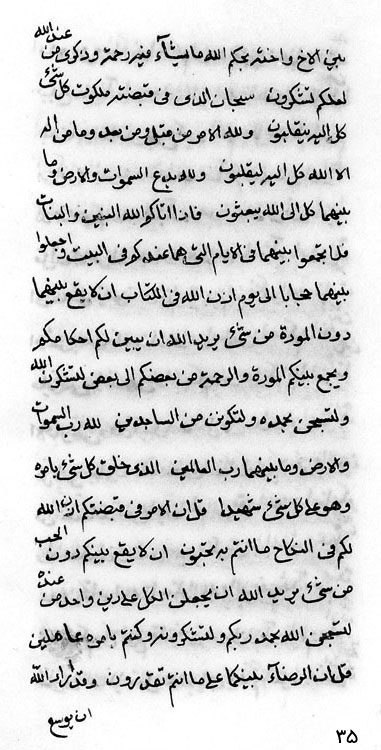 بين الاخ واخته يحكم الله ما يشآء فيه رحمة وذكرى من عند الله
لعلكم تشكرون سبحان الذى فى قبضته ملكوت كل شئ
كل اليه ينقلبون ولله الامر من قبل ومن بعد وما من اله
الا الله كل اليه ليقلبون ولله بدع السموات والارض وما
بينهما كل الى الله يبعثون فان اتاكم الله البنين والبنات
فلا تجمعوا بينهما فى الايام التى هما عندكم فى البيت واجعلوا
بينهما حجابا الى يوم اذن الله فى الكتاب ان لا يقع بينهما
دون المودة من شئ يريد الله ان يبين لكم احكامكم
ويجمع بينكم المودة والرحمة من بعضكم الى بعض لتشكرن الله
ولتسبحن بحمده ولتكونن من الساجدين لله رب السموات
والارض وما بينهما رب العالمين الذى خلق كل شئ بامره
وهو على كل شئ شهيدا قل ان الامر فى قبضتكم اذن الله
لكم فى النكاح ما انتم به تحبون ان لا يقع بينكم دون الحب
من شئ يريد الله ان يجعلن الكل على دين واحد من عنده
لتسبحن الله بحمد ربكم ولتشكرونه وكنتم بامره عاملين
قل ان الرضآء بينكما على ما انتم تقدرون وقد اراد الله
ان يوسع
٣٥